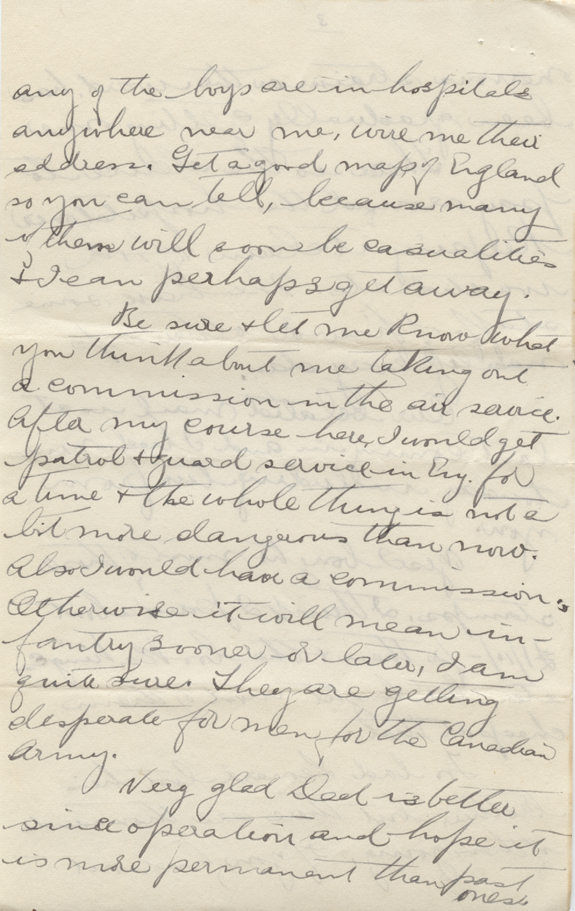 3
any of the boys are in hospitals
anywhere near me, wire me their
address. Get a good map of England
so you can tell, because many
of them will soon be casualities
& I can perhaps get away.
Be sure & let me know what
you think about me taking out
a commission in the air service.
After my course here, I would get
patrol & guard service in Eng. for
a time & the whole thing is not a
bit more dangerous than now.
Also I would have a commission.
Otherwise it will mean in-
fantry sooner or later, I am
quite sure. They are getting
desperate for men, for the Canadian
Army.
Very glad Dad is better
since operation and hope it
is more permanent than past
ones.